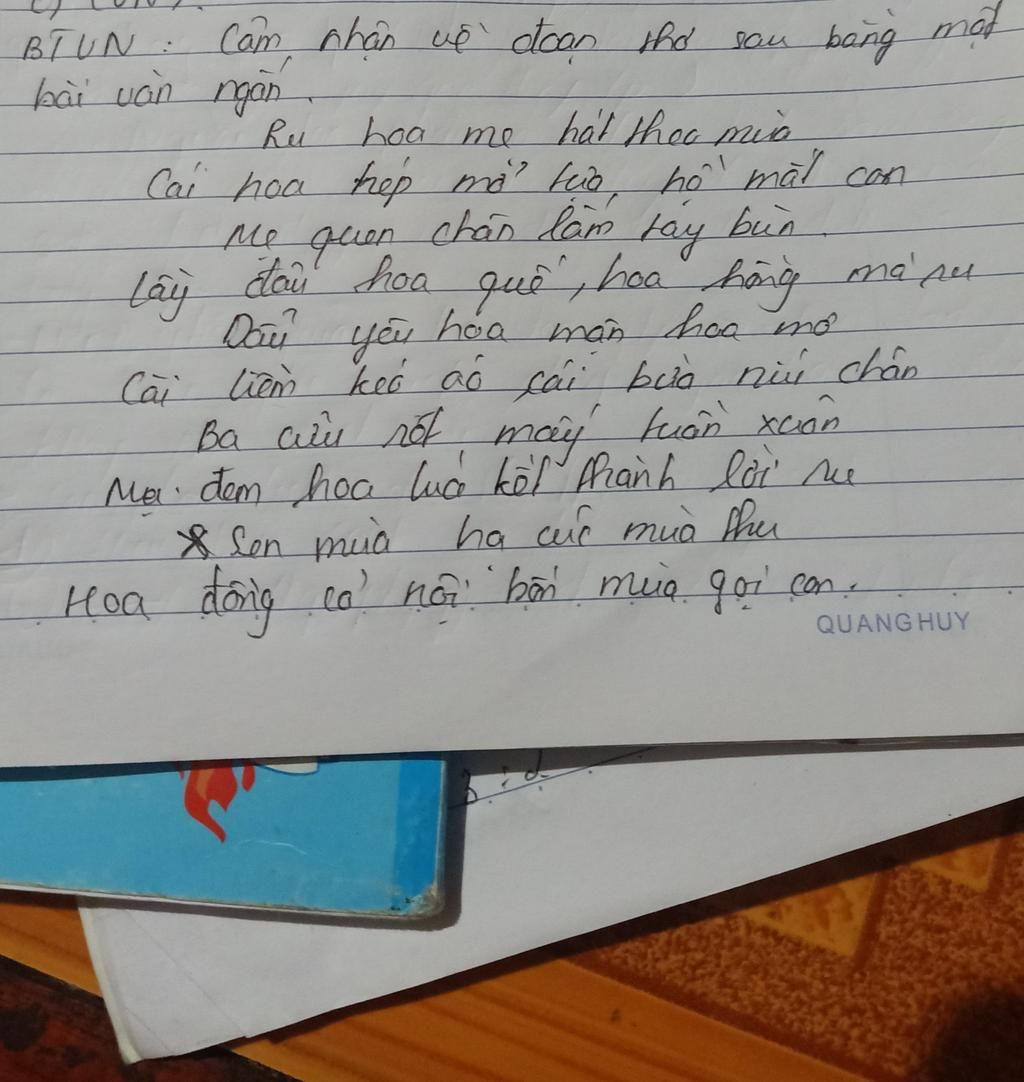 BTVN : Cảm nhận về đoạn thơ sau bằng một
bài văn ngắn.
Ru hoa mẹ hát theo mùa
Cái hoa hẹp mở lùa, hố mắt con
Mẹ quen chân lấm tay bùn.
Lấy đâu hoa quế, hoa hồng mà ru
Dẫu yêu hoa mận hoa mơ
Cái liềm kéo áo cái bừa níu chân
Ba cữu rét mấy tuần xuân
Mẹ đem hoa lúa kết thành lời ru
Sen mùa hạ cúc mùa thu
Hoa đồng cỏ nội bốn mùa gọi con.
QUANG HUY